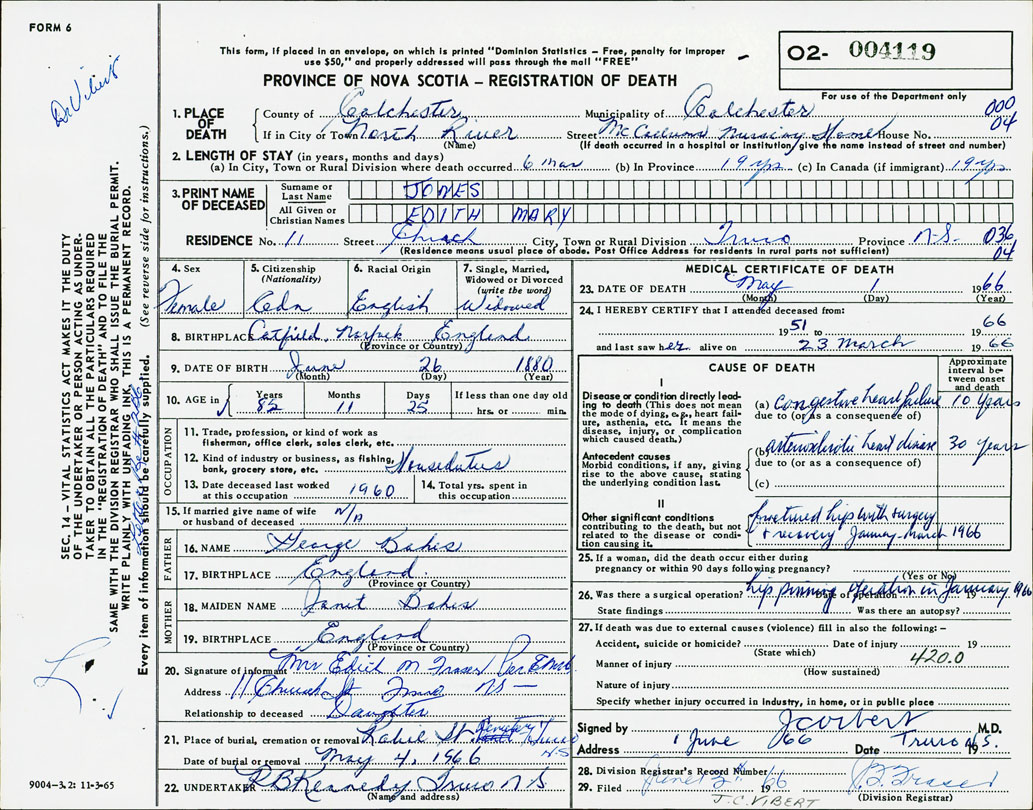 FORM 6
Dr Vibert
This form, if placed in an envelope, on which is printed "Dominion Statistics – Free, penalty for improper
use $50," and properly addressed will pass through the mail "FREE"
O2- 004119
For use of the Department only
PROVINCE OF NOVA SCOTIA – REGISTRATION OF DEATH
1. PLACE OF DEATH County of Colchester Municipality of Colchester 000
If in City or Town North River (Name) Street McCallums Nursing Home House No. 04
(If death occurred in a hospital or Institution, give the name instead of street and number)
2. LENGTH OF STAY (in years, months and days)
(a) In City, Town or Rural Division where death occurred 6 mos (b) In Province 19 yrs (c) In Canada (if immigrant) 19 yrs
3. PRINT NAME OF DECEASED
Surname or Last Name JONES
All Given or Christian Names EDITH MARY
RESIDENCE No. 11 Street Church City, Town or Rural Division Truro Province N-S- 036
(Residence means usual place of abode. Post Office Address for residents in rural parts not sufficient) 04
4. Sex Female
5. Citizenship (Nationality) Cdn
6. Racial Origin English
7. Single, Married, Widowed or Divorced (write the word) Widowed
8. BIRTHPLACE Catfield, Norfolk England
(Province or Country)
9. DATE OF BIRTH June (Month) 26 (Day) 1880 (Year)
10. AGE in Years Months Days If less than one day old
85 11 25 hrs. or min.
OCCUPATION
11. Trade, profession, or kind of work as
fisherman, office clerk, sales clerk, etc.
12. Kind of industry or business, as fishing,
bank, grocery store, etc.
13. Date deceased last worked
at this occupation 1960
14. Total yrs. spent in
this occupation
15. If married give name of wife
or husband of deceased N/A
FATHER
16. NAME George
17. BIRTHPLACE England
(Province or Country)
MOTHER
18. MAIDEN NAME Janet
19. BIRTHPLACE England
(Province or Country)
20. Signature of informant Mrs Edith M Fraser Per
Address 11 Church St Truro NS –
Relationship to deceased Daughter
21. Place of burial, cremation or removal St Cemetery Truro N S
Date of burial or removal May 4, 1966
22. UNDERTAKER R B Kennedy Truro N S
(Name and address)
MEDICAL CERTIFICATE OF DEATH
23. DATE OF DEATH May (Month) 1 (Day) 1966 (Year)
24. I HEREBY CERTIFY that I attended deceased from:
1951 to 1966
and last saw her alive on 23 March 1966
CAUSE OF DEATH
Approximate interval between onset and death
I
Disease or condition directly leading to death (This does not mean
the mode of dying, e.g., heart failure, asthenia, etc. It means the
disease, injury, or complication
which caused death.)
(a) Congestive heart failure 10 years
due to (or as a consequence of)
Antecedent causes
Morbid conditions, if any, giving
rise to the above cause, stating
the underlying condition last.
(b) arteriosclerotic heart disease 30 years
due to (or as a consequence of)
(c)
II
Other significant conditions
contributing to the death, but not
related to the disease or condition causing it.
fractured hip with surgery
+ recovery January-March 1966
25. If a woman, did the death occur either during
pregnancy or within 90 days following pregnancy?
(Yes or No)
26. Was there a surgical operation? hip pinning Date of operation Operation in January 1966 19
State findings Was there an autopsy?
27. If death was due to external causes (violence) fill in also the following: –
Accident, suicide or homicide? (State which) Date of injury 19
Manner of injury (How sustained) 420.0
Nature of injury
Specify whether injury occurred in Industry, in home, or in public place
Signed by J C Vibert M.D.
Address 1 June 66 Date Truro N.S. 19
28. Division Registrar's Record Number
29. Filed June 2nd 1966 Fraser
(Division Registrar)
J.C. VIBERT
SEC. 14 – VITAL STATISTICS ACT MAKES IT THE DUTY
OF THE UNDERTAKER OR PERSON ACTING AS UNDER-
TAKER TO OBTAIN ALL THE PARTICULARS REQUIRED
IN THE "REGISTRATION OF DEATH" AND TO FILE THE
SAME WITH THE DIVISION REGISTRAR WHO SHALL ISSUE THE BURIAL PERMIT.
WRITE PLAINLY WITH UNFADING INK, THIS IS A PERMANENT RECORD.
Every item of information should be carefully supplied. (See reverse side for instructions.)
9004-3.2: 11-3-65